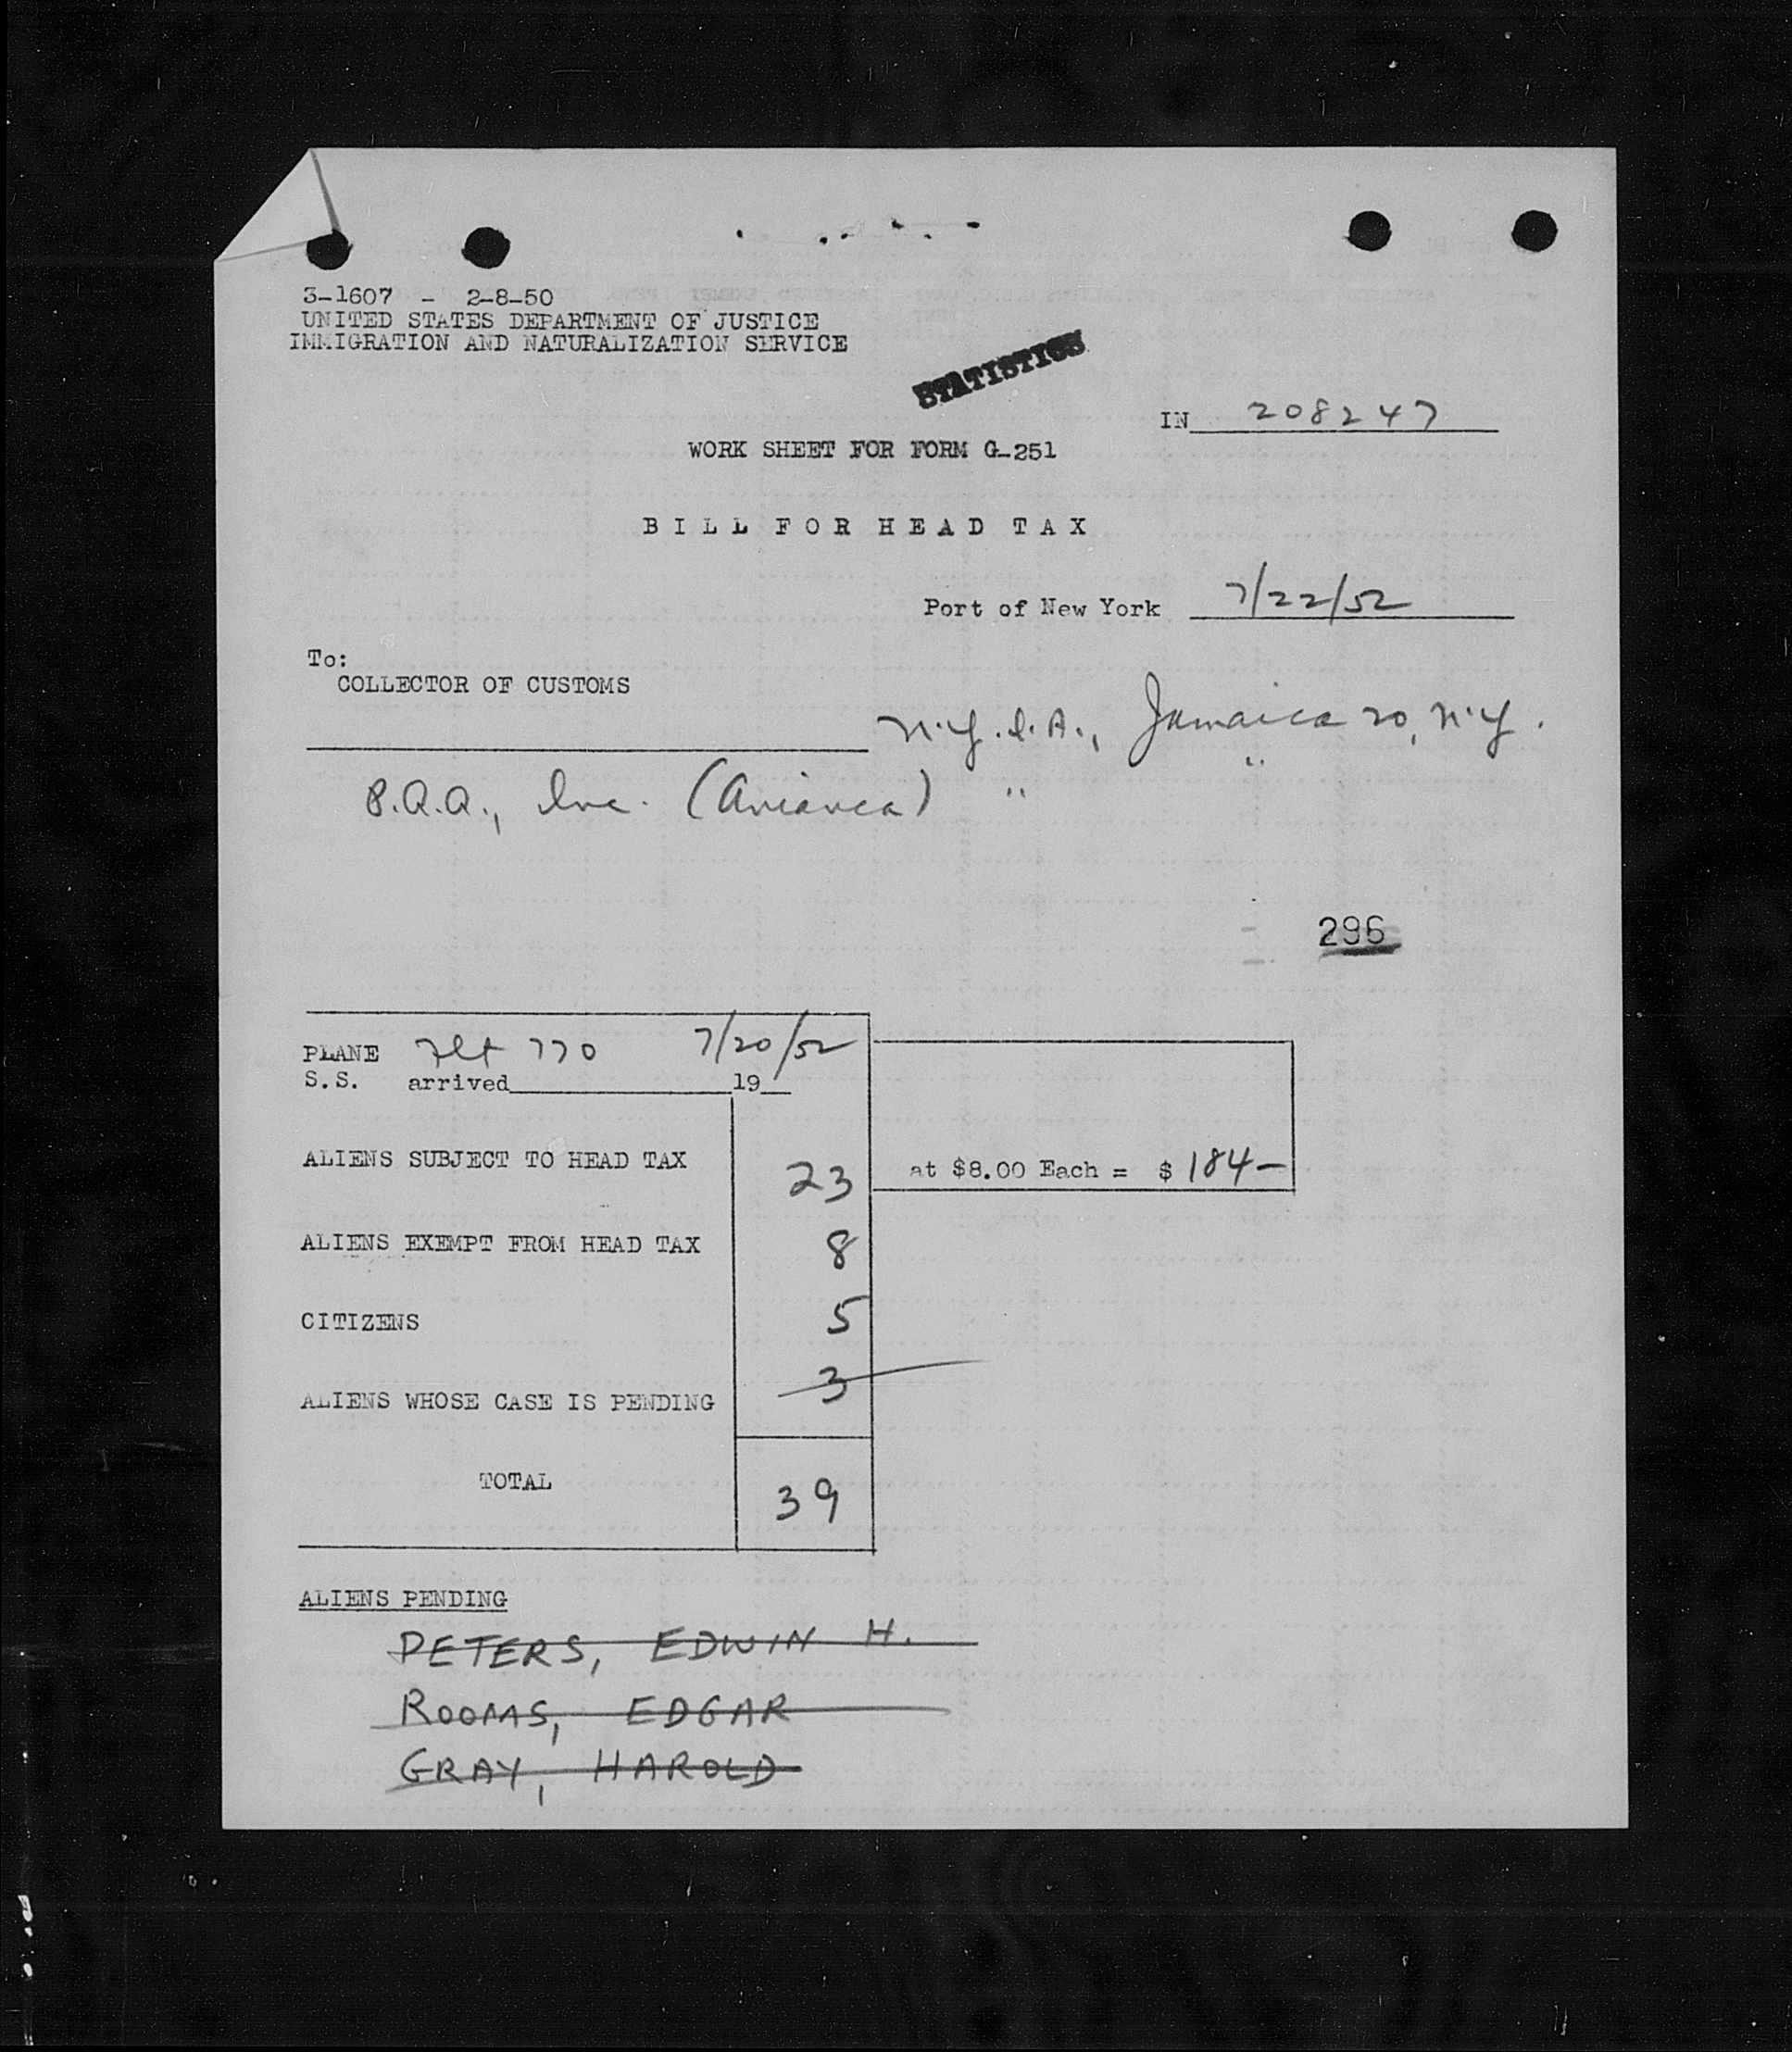 3-1607 - 2-8-50
UNITED STATES DEPARTMENT OF JUSTICE
IMMIGRATION AND NATURALIZATION SERVICE
STATISTICS
IN 208247
WORK SHEET FOR FORM G-251
BILL FOR HEAD TAX
Port of New York 7/22/52
To:
COLLECTOR OF CUSTOMS
N.Y.I.A., Jamaica 20, N.Y.
P.A.A., Inc. (Avianca) " "
296
PLANE Flt 770 7/20/52
S.S. arrived 19
ALIENS SUBJECT TO HEAD TAX 23 at $8.00 Each = $ 184-
ALIENS EXEMPT FROM HEAD TAX 8
CITIZENS 5
ALIENS WHOSE CASE IS PENDING 3
TOTAL 39
ALIENS PENDING
PETERS, EDWIN H.
ROOMS, EDGAR
GRAY, HAROLD